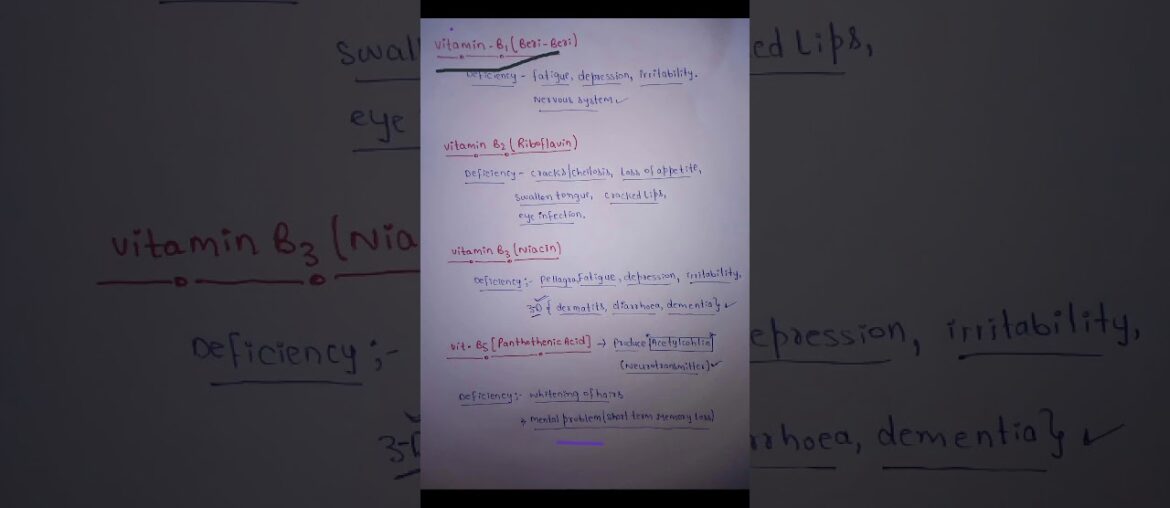 vitamin-B₁ (Beri-Beri)
Deficiency - fatigue, depression, irritability.
Nervous system ✓
vitamin B₂ (Riboflavin)
Deficiency - cracks/chellosis, Loss of appetite,
swallen tongue, cracked Lips,
eye infection.
vitamin B₃ (Niacin)
Deficiency:- pellagra, fatigue, depression, irritability,
3-D { dermatits, diarrhoea, dementia } ✓
vit. B₅ [Panthothenic Acid] → produce [Acetylcohlin]
(Neurotransmitter) ✓
Deficiency:- whitening of hairs
→ mental problem (short term memory loss)